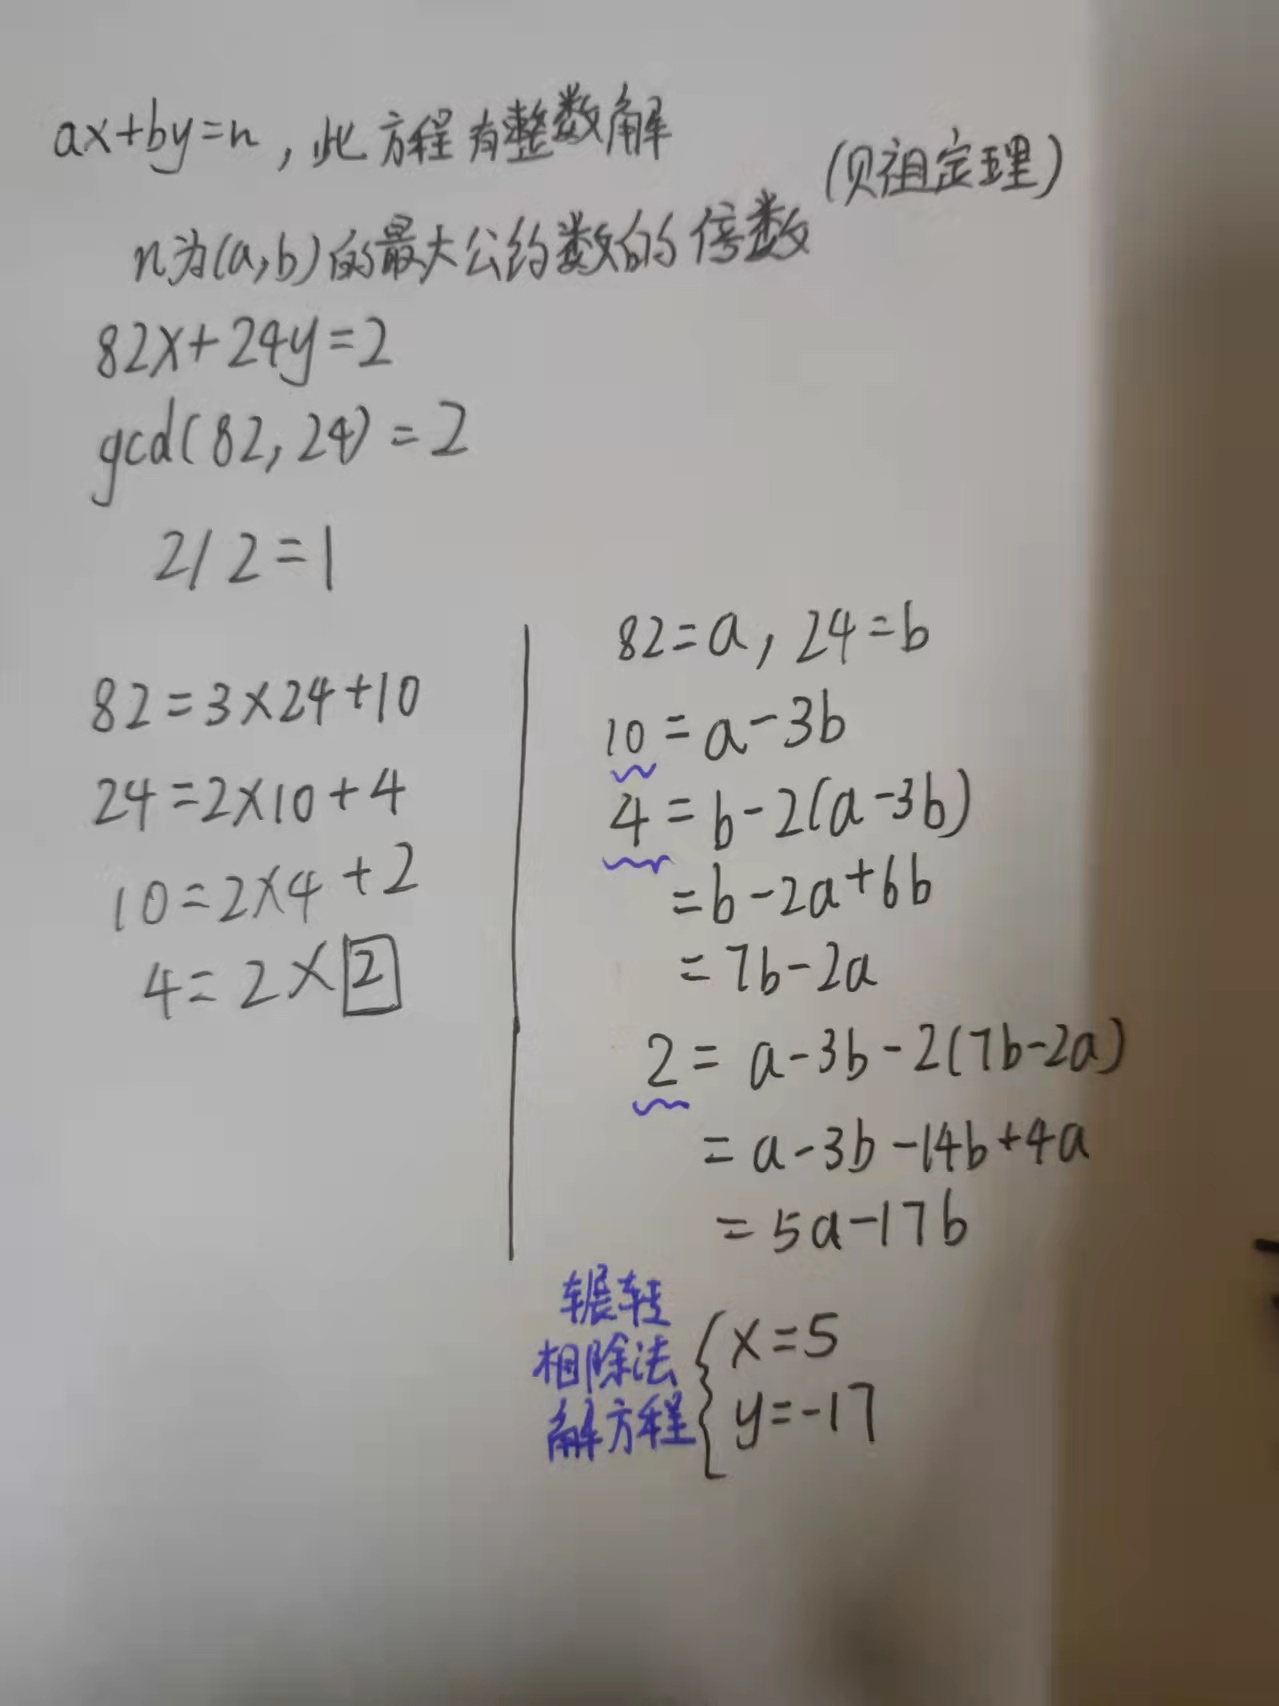 ax+by=n，此方程有整数解
(贝祖定理)
n为(a,b)的最大公约数的倍数
82x+24y=2
gcd(82,24)=2
2/2=1
82=3×24+10
24=2×10+4
10=2×4+2
4=2×2
82=a，24=b
10=a-3b
4=b-2(a-3b)
=b-2a+6b
=7b-2a
2=a-3b-2(7b-2a)
=a-3b-14b+4a
=5a-17b
辗转
相除法
解方程
x=5
y=-17